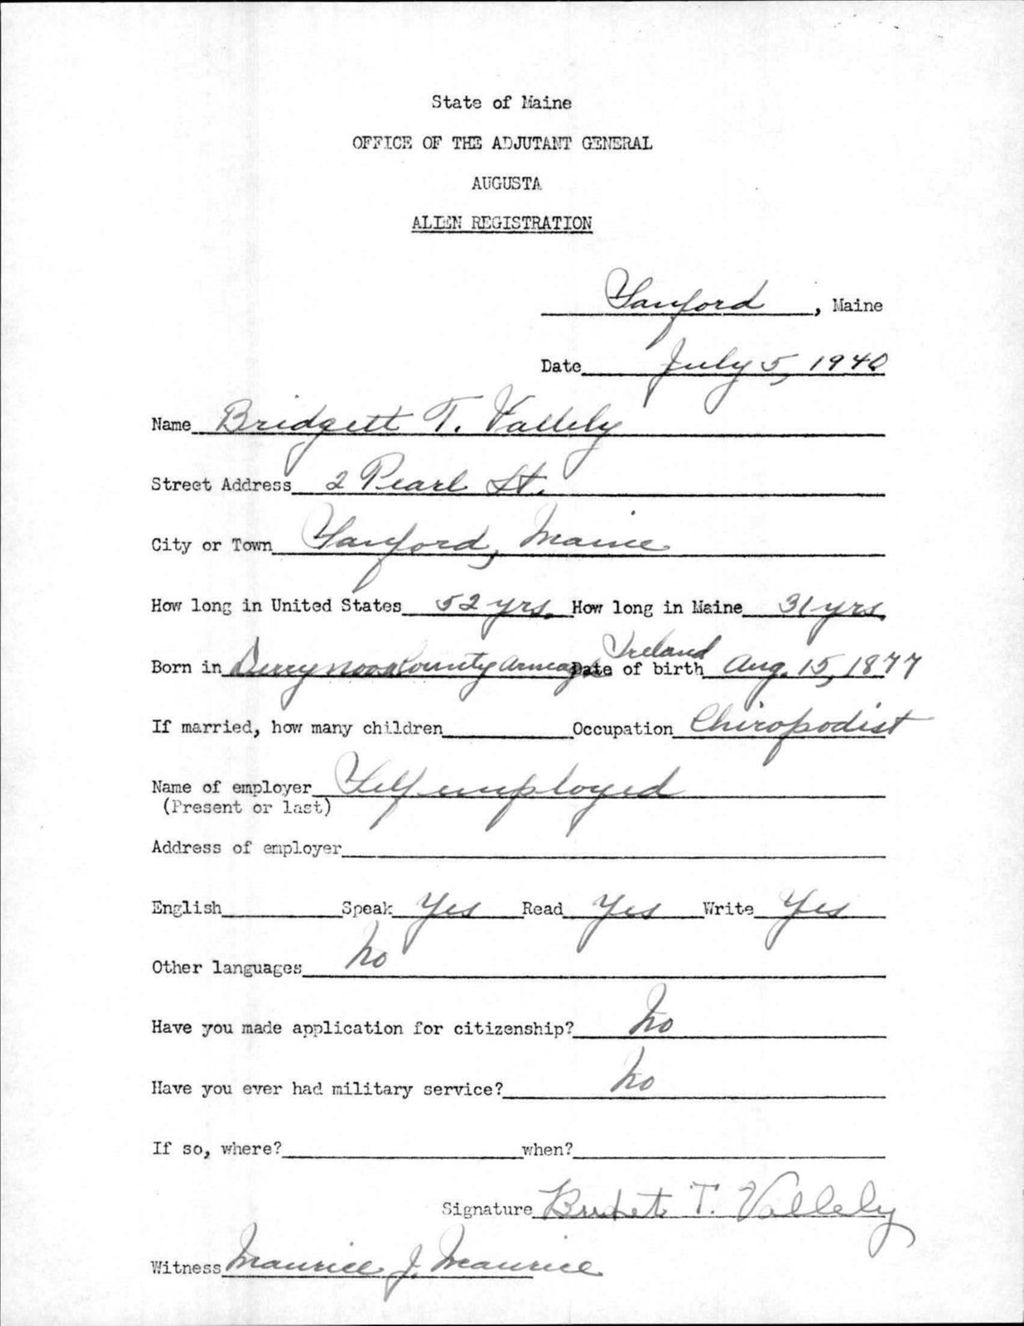 State of Maine
OFFICE OF THE ADJUTANT GENERAL
AUGUSTA
ALIEN REGISTRATION
Sanford, Maine
Date July 5, 1940
Name Bridgett T. Vallely
Street Address 2 Pearl St.
City or Town Sanford, Maine
How long in United States 52 yrs. How long in Maine 31 yrs.
Born in County Armagh Ireland Date of birth Aug. 15, 1877
If married, how many children Occupation Chiropodist
Name of employer Self employed
(Present or last)
Address of employer
English Speak Yes Read Yes Write Yes
Other languages No
Have you made application for citizenship? No
Have you ever had military service? No
If so, where? when?
Signature T. Vallely
Witness Maurice J. Maurice